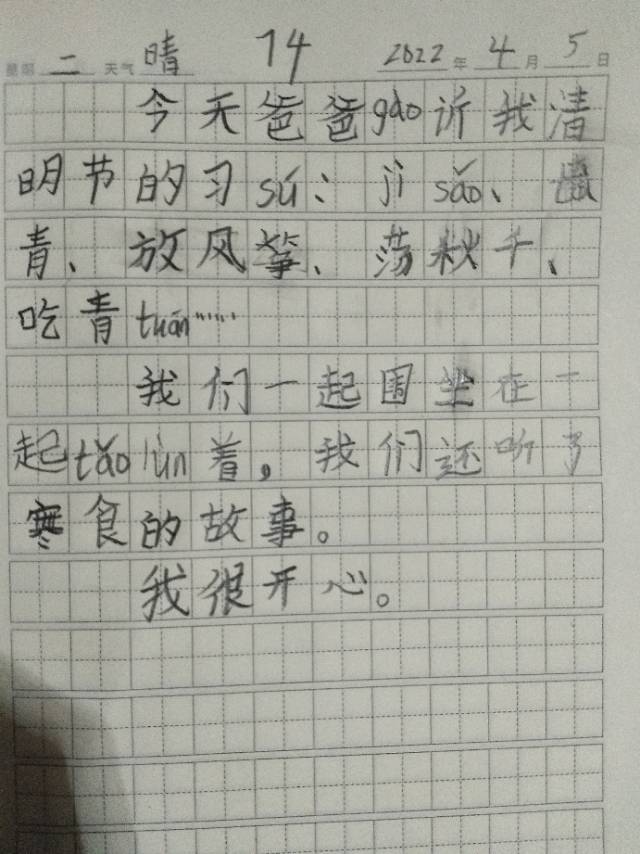 星期 二 天气 晴 14 2022 年 4 月 5 日
今天爸爸gào诉我清
明节的习sú：jì sǎo、
青、放风筝、荡秋千、
吃青tuán……
我们一起围坐在一
起tǎo lùn着，我们还听了
寒食的故事。
我很开心。